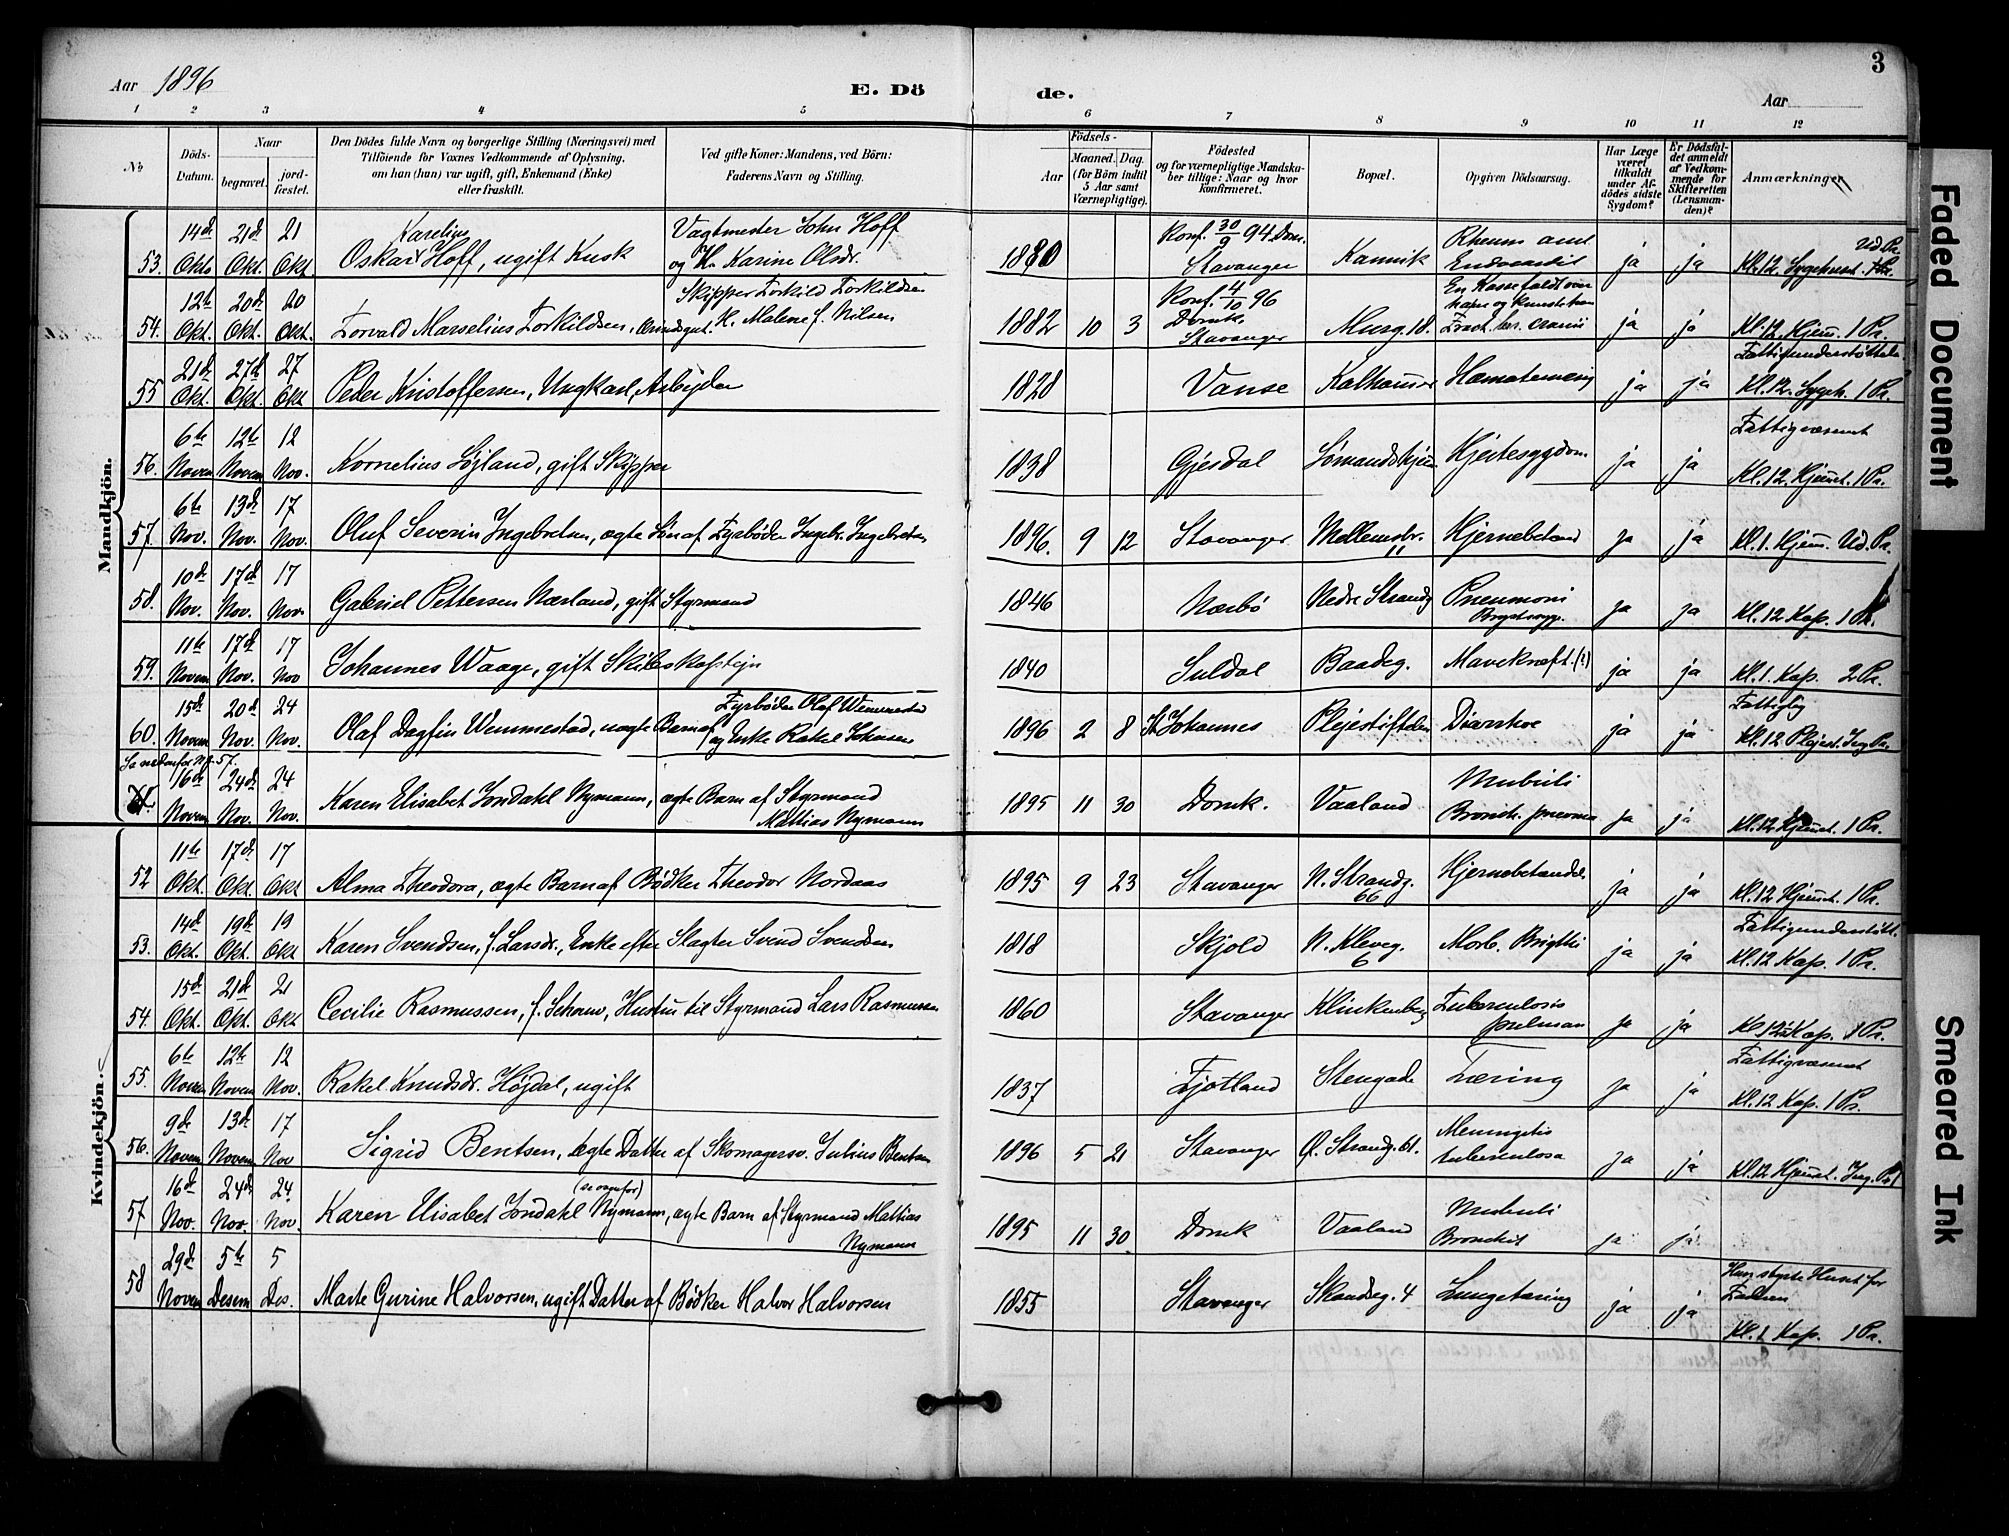 Aar 1896
E. Dö
de.
Aar
3
1 2 3 4 5 6 7 8 9 10 11 12
No
Döds-Datum.
Naar
begravet.
jord-fæstet.
Den Dödes fulde Navn og borgerlige Stilling (Næringsvei) med
Tilföiende for Voxnes Vedkommende af Oplysning,
om han (hun) var ugift, gift, Enkemand (Enke)
eller fraskilt.
Ved gifte Koner: Mandens, ved Börn:
Faderens Navn og Stilling.
Födsels-
Aar
Maaned. Dag.
(for Börn indtil
5 Aar samt
Værnepligtige).
Födested
og for værnepligtige Mandska-
ber tillige: Naar og hvor
konfirmeret.
Bopæl.
Opgiven Dödsaarsag.
Har Læge
været
tilkaldt
under Af-
dödes sidste
Sygdom?
Er Dödsfal-
det anmeldt
af Vedkom-
mende for
Skifteretten
(Lensman-
den)?
Anmærkninger
Mandkjön.
53. 14de Okto 21de Okt. 21 Okt. Oskar Karelius Hoff, ugift Kusk Vagtmester John Hoff og H. Karine Olsdr. 1880 Konf. 30/9 94 Dom. Stavanger Kannik Rheum acut Endocardit ja ja Kl. 12. Sygehuset. Ud. Pr.
54. 12te Okt. 20de Okt. 20 Okt. Torvald Marselius Torkildsen, Skipper Torkild Torkildsen H. Malene f. Nilsen 1882 10 3 Konf. 4/10 96 Domk. Stavanger Murg. 18. Fract. bas. cranii ja ja Kl. 12. Hjem. 1 Pr.
55 21de Okt. 27de Okt. 27 Okt Peder Kristoffersen, Ungkarl, Arbejder 1828 Vanse Kalhammer Hæmatemesis ja ja Fattigunderstøttelse Kl. 12. Sygeh. 1 Pr.
56. 6te Novem 12te Novem 12 Nov. KorneliusLøjland, gift Skipper 1838 Gjesdal Sømandshjem Hjertesygdom ja ja Fattigvæsenet Kl. 12. Hjemmet. 1 Pr.
57. 6te Nov. 13de Nov. 17 Nov. Oluf Severin Ingebretsen, ægte Søn af Fyrbøder Ingebr. Ingebretsen 1896. 9 12 Stavanger Møllemsbr. 11 Hjernebetænd ja ja Kl. 1. Hjem. Ud. Pr.
58. 10de Nov. 17de Nov. 17 Nov. Gabriel Pettersen Nærland, gift Styrmand 1846 Nærbö Nedre Strandg Pneumoni Brystsyg. ja ja Kl. 12 Kap. 1 Pr.
59. 11te Novem 17de Nov. 17 Nov Johannes Waage, gift Skibskaptejn 1840 Suldal Baadeg. Mavekræft. (?) ja ja Kl. 1. Kap. 2 Pr.
60. 15de Novem 20de Nov. 24 Nov. Olaf Dagfin Wemmestad, uægte Barn af Fyrbøder Olaf Wemmestad og Enke Rakel Johnsen 1896 2 8 St. Johannes Plejestiftelsen Diarrhoe ja ja Fattiglig Kl. 12 Plejest. Ing Pr.
Se nedenfor No 57.
16de Novem 24de Nov. 24 Nov. Karen Elisabet Jondahl Nymann, ægte Barn af Styrmand Mattias Nymann 1895 11 30 Domk. Vaaland Morbilli Bronch. pneumo ja ja Kl. 12 Hjemmet. 1 Pr.
Kvindekjön.
52 11te Okt. 17de Okt 17 Okt Alma Theodora, ægte Barn af Bødker Theodor Nordaas 1895 9 23 Stavanger N. Strandg. 66 Hjernebetændels ja ja Kl. 12 Hjemmet. 1 Pr.
53. 14de Okt. 19de Okt. 19 Okt Karen Svendsen, f. Larsdr., Enke efter Slagter Svend Svendsen 1818 Skjold N. Kleveg. 6 Morb. Brigthi ja ja Fattigunderstøtt. Kl. 12 Kap. 1 Pr.
54. 15de Okt. 21de Okt. 21 Okt Cecilie Rasmussen, f. Schouw, Hustru til Styrmand Lars Rasmussen 1860 Stavanger Klinkenberg Tuberculosis pulman ja ja Kl. 12 Kap. 1 Pr.
55. 6te Novem 12te Novem 12 Nov. Rakel Knudsdr. Højdal, ugift 1837 Fjotland Stengade Tæring ja ja Fattigvæsenet Kl. 12 Kap. 1 Pr.
56. 9de Novem 13de Novem 17 Nov Sigrid Bentsen, ægte Datter af Skomagersv. Julius Bentsen 1896 5 21 Stavanger Ø. Strandg. 61. Meningitis tuberculosa ja ja Kl. 12 Hjemmet. Ing. Pr
57 16de Nov. 24de Nov. 24 Nov. Karen Elisabet Jondahl (se ovenfor) Nymann, ægte Barn af Styrmand Mattias Nymann 1895 11 30 Domk Vaaland Morbilli Bronchit ja ja
58 29de Novem 5te Desem 5 Des. Marte Gurine Halvorsen, ugift Datter af Bødker Halvor Halvorsen 1855 Stavanger Skandseg. 4 Lungetæring ja ja Hun styrte Huset for Faderen Kl. 1 Kap. 1 Pr.
Faded Document
Smeared Ink